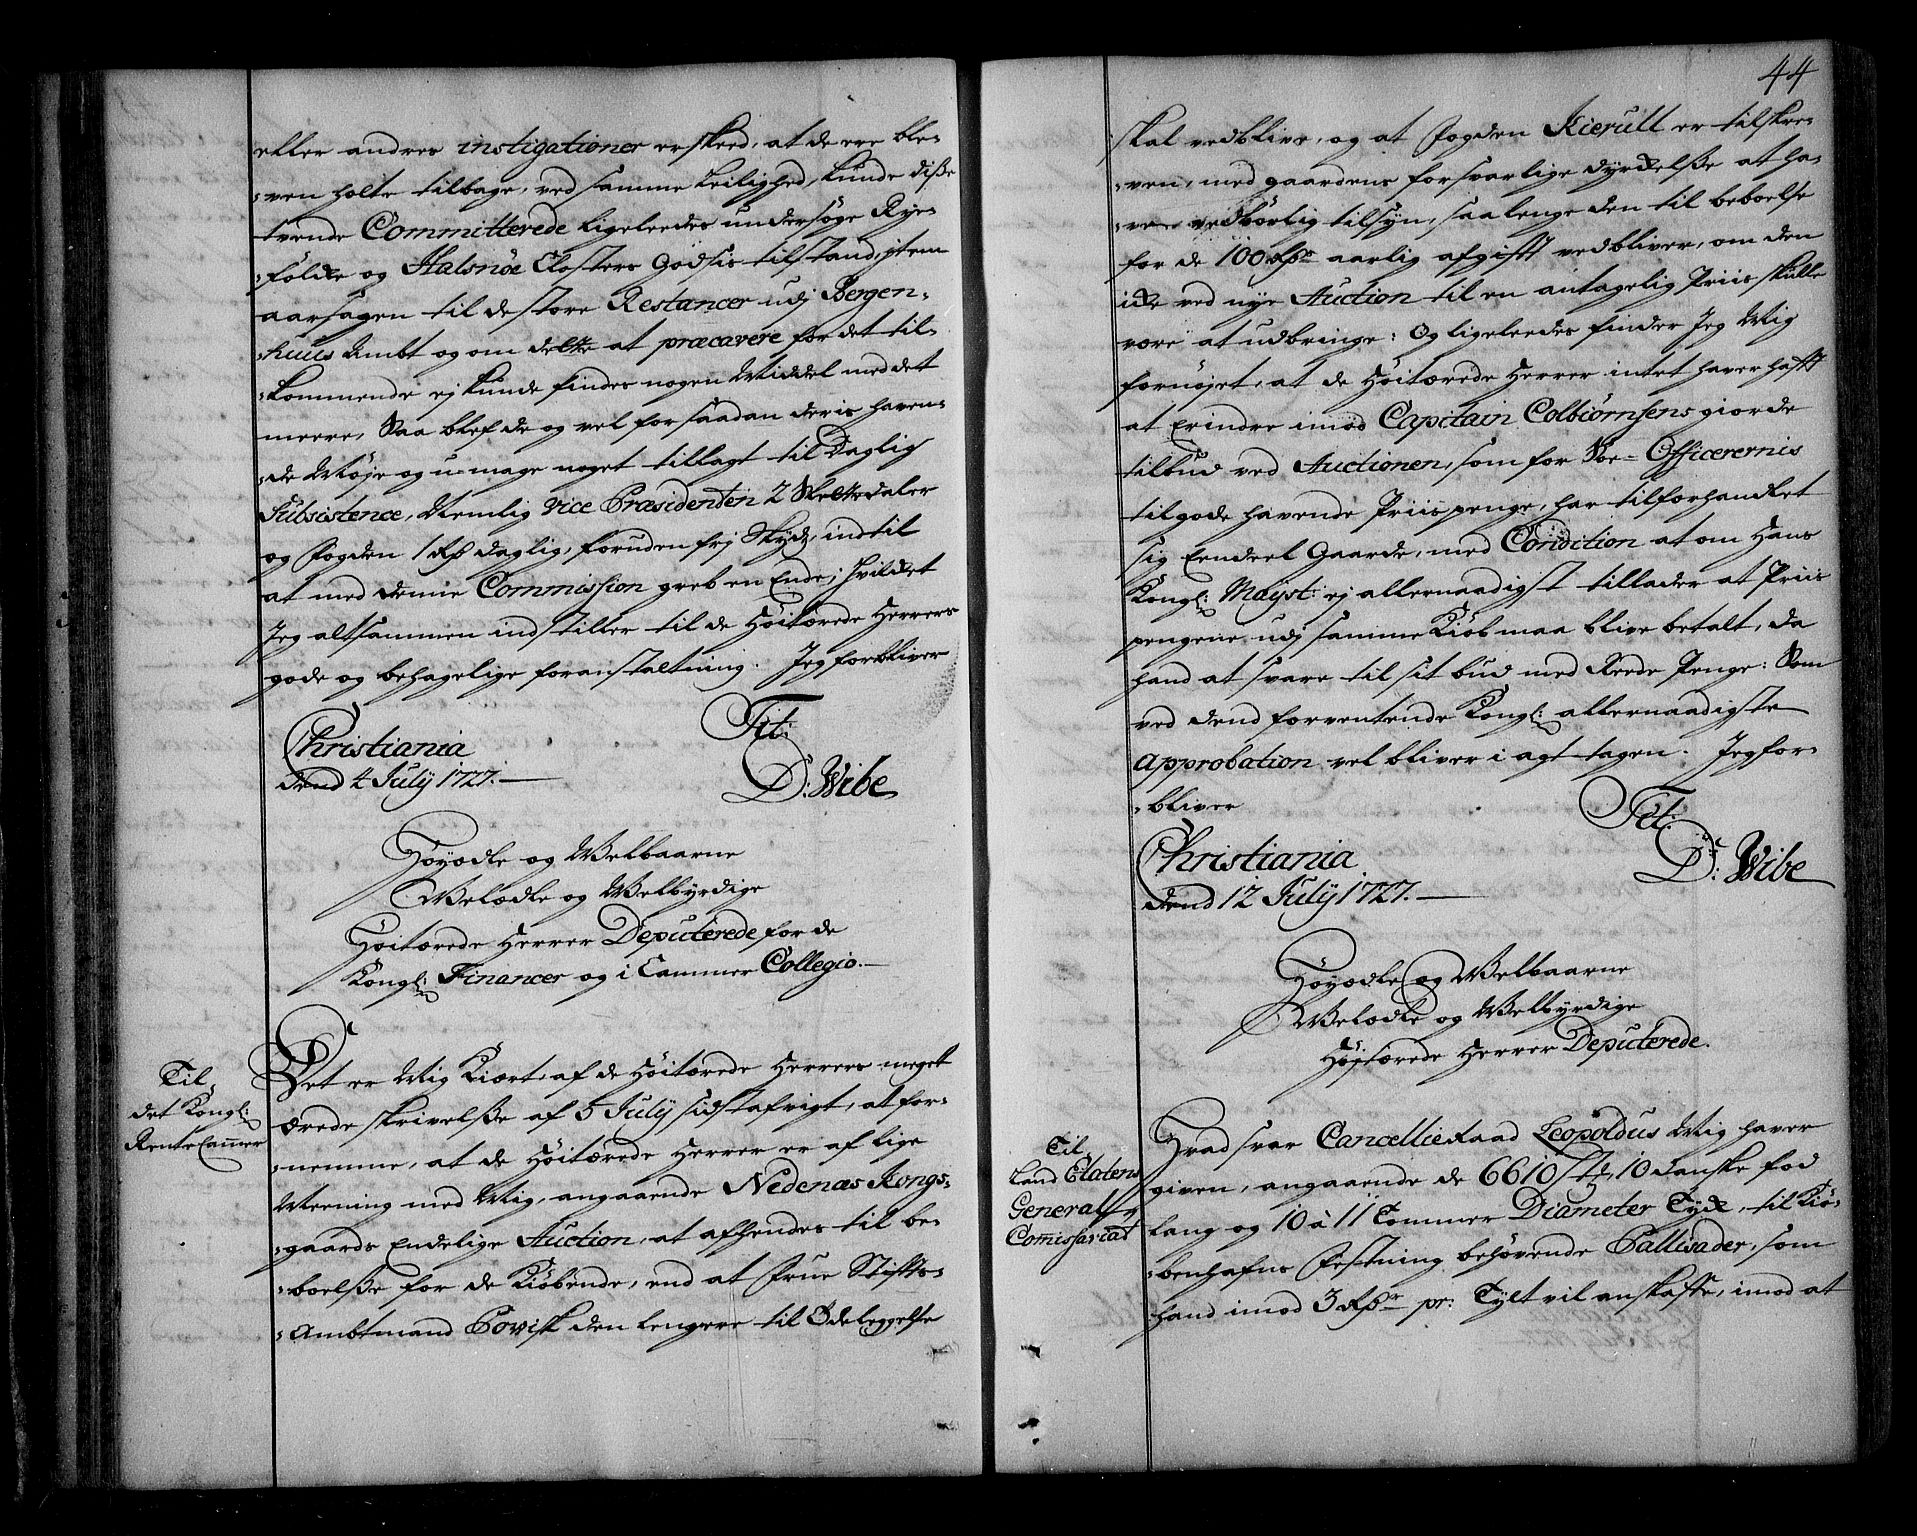 eller andres instigationer er skeed, at de ere ble-
ven holte tilbage, ved samme Leilighed, kunde disse
tvende Committerede ligeleedes undersøge Rye-
folke og Halsnøe Closters Godsis tilstand, jtem
aarsagen til de store Restancer udj Bergen-
huus Ambt og om at præcavere for det til-
kommende ej kunde findes nogen Middel med det
meere, Saa blef de og vel for saadan deris haven-
de Møje og umage noget tillagt til Daglig
Subsistence, Nemlig Vice Præsidenten 2 Slettedaler
og Fogden 1 Rd daglig, foruden frj Skyds, indtil
at med denne Commission greb en Ende; hvilket
Jeg altsammen indstiller til de Høitærede Herrers
gode og behagelige foranstaltning. Jeg forbliver
Tit:
Christiania
dend 4 July 1727.
D: Wibe
Høyædle og Welbaarne
Welædle og Welbyrdige
Høitærede Herrer Deputerede for de
Kongl: Financer og i Cammer Collegio.
Til
det Kongl:
Rente Cammer
Det er Mig Kiært, af de Høitærede Herrers meget
ærede skrivelsse af 5 July sidst afvigt, at for-
nemme, at de Høitærede Herrer er af lige
Meening med Mig, angaaende Nedenæs Kongs-
gaards Endelige Auction, at afhendes til be-
boelsse for de Kiøbende, end at Frue Stifts-
Ambtmand Povisk den lengere til Ødeleggelse
44
skal vedblive, og at Fogden Kierull er tilskre-
ven, med gaardens forsvarlige dyrkelsse at ha-
ve vedbørlig tilsyn, saa lenge den til beboelse
for de 100 Rdr aarlig afgift vedbliver, om den
icke ved nye Auction til en antagelig Priis skulle
være at udbringe: Og ligeleedes finder Jeg Mig
fornøjet, at de Høitærede Herrer intet haver haft
at Erindre imod Capitain Colbiørnsens giorde
tilbud ved Auctionen, som for Søe-Officerernis
tilgode havende Priis penge, har tilforhandlet
sig Eendeel Gaarde, med Condition at om Hans
Kongl: Mayst: ej allernaadigst tillader at Priis
pengene, udj samme Kiøb maa blive betalt, da
hand at svare til sit bud med Reede Penge: Som
ved dend forventende Kongl: allernaadigste
Approbation vel bliver i agt tagen. Jeg for-
bliver
Tit:
Christiania
dend 12 July 1727.
D: Wibe
Høyædle og Welbaarne
Welædle og Welbyrdige
Højtærede Herrer Deputerede.
Til
Land Etatens
General
Comissariat
Hvad svar Cancellie Raad Leopoldus Mig haver
given, angaaende de 6610 10 danske fod
lang og 10 à 11 Tommer Diameter Tyck, til Kiø-
benhafns Festning behøvende Pallisader, som
hand imod 3 Rdr pr: Tylt vil anskaffe, imod at